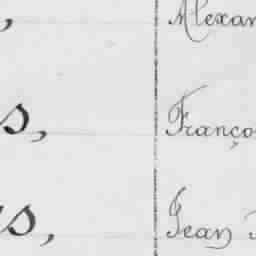 , Alexan
s, Franço
s, Jean